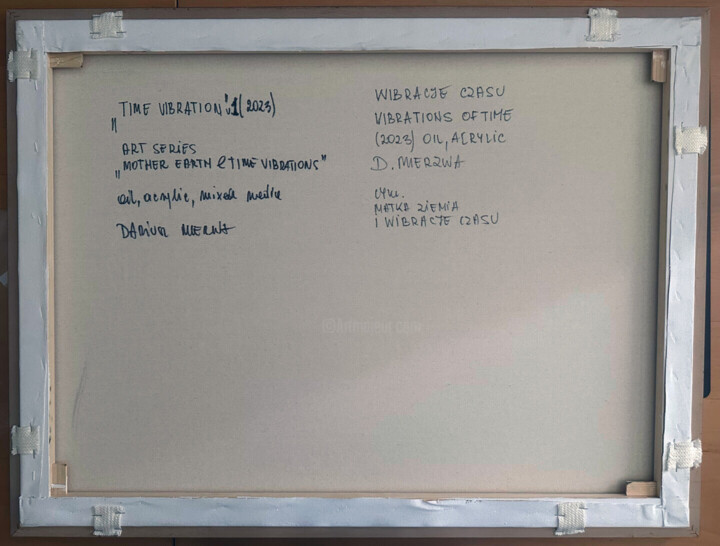 „TIME VIBRATION" 1 (2023)
ART SERIES
„MOTHER EARTH & TIME VIBRATIONS"
oil, acrylic, mixed media
DARIUSZ MIERZWA
WIBRACJE CZASU
VIBRATIONS OF TIME
(2023) OIL, ACRYLIC
D. MIERZWA
CYKL.
MATKA ZIEMIA
I WIBRACJE CZASU